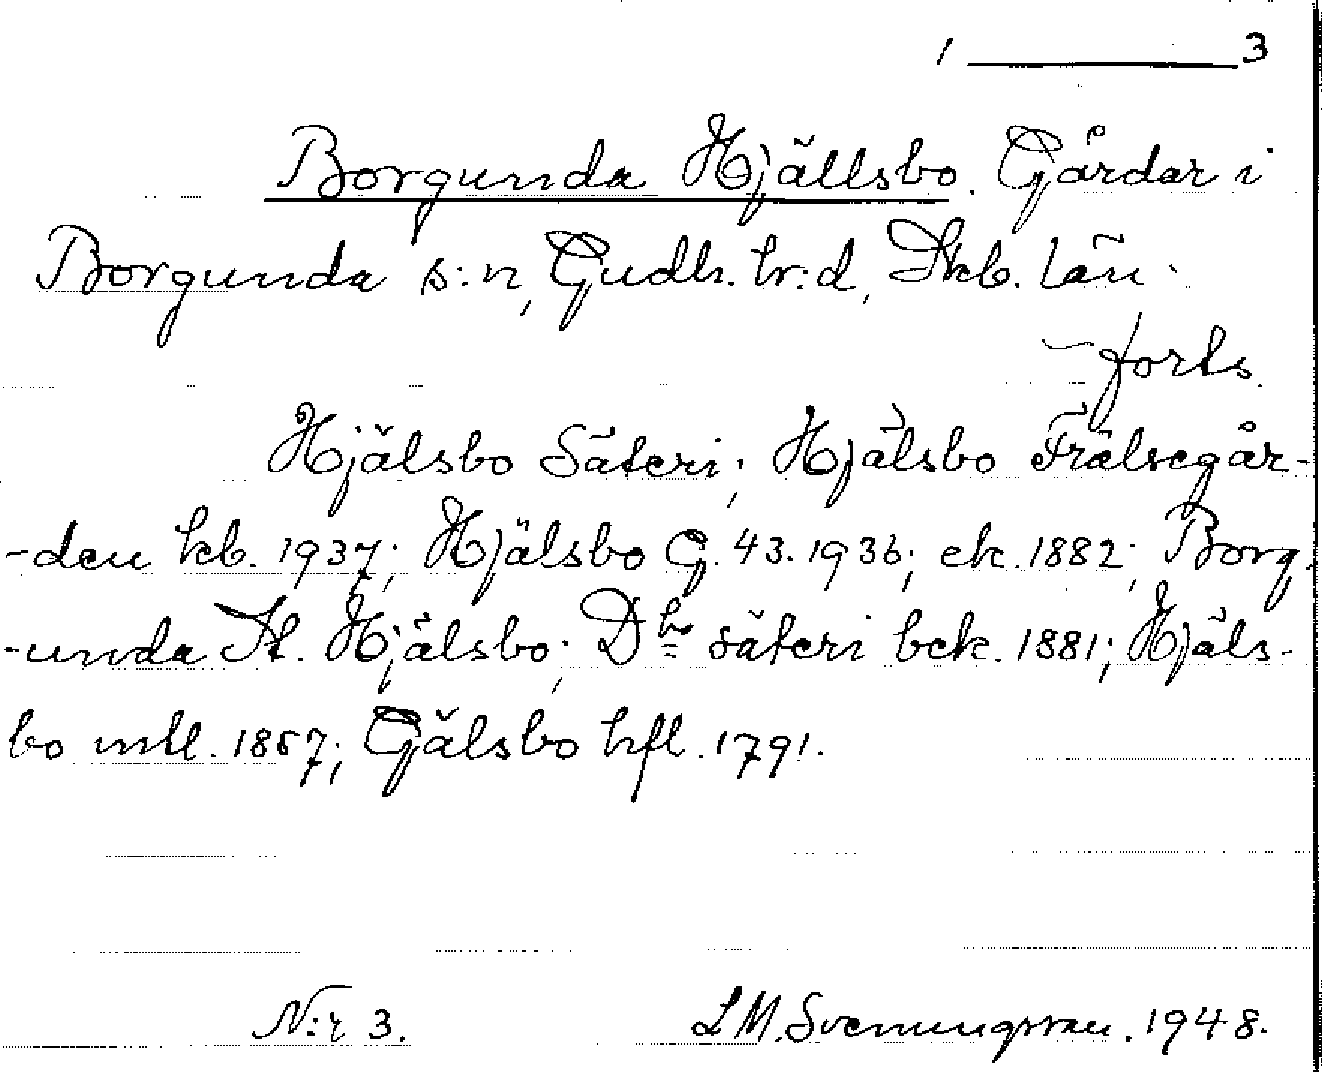 1 ——— 3
Borgunda Hjällsbo. Gårdar i
Borgunda s:n, Gudh. hr:d, Skb. län.
– forts.
Hjälsbo Säteri; Hjälsbo Frälsegår-
-den kb. 1937; Hjälsbo G. 43. 1936; ek. 1882; Borg-
-unda St. Hjälsbo; Do säteri bek. 1881; Hjäls-
bo mtl. 1857; Gjälsbo hfl. 1791.
N:r 3. LM. Svenungsson. 1948.